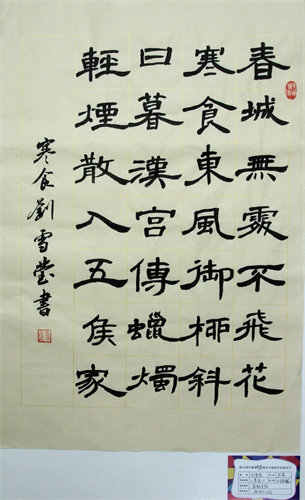 春城無處不飛花
寒食東風御柳斜
日暮漢宮傳蠟燭
輕煙散入五侯家
寒食劉雪瑩書